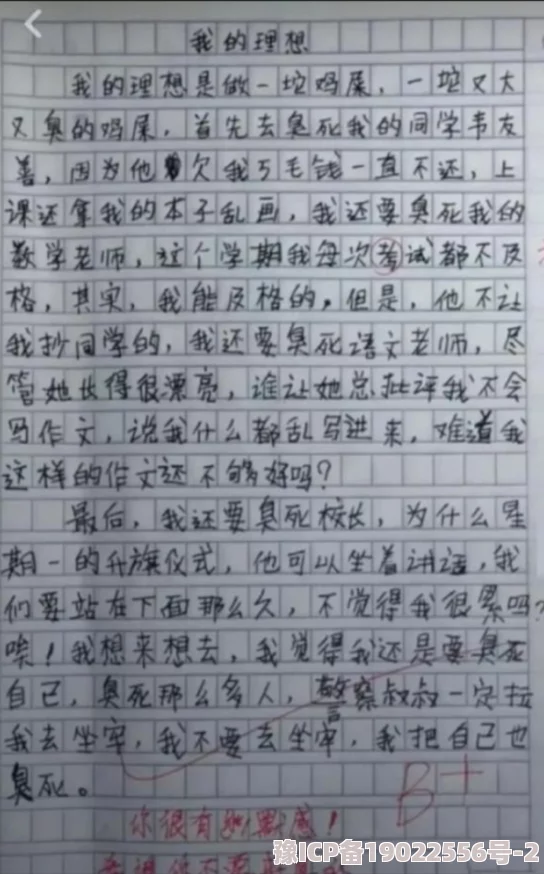 我的理想
我的理想是做一坨鸡屎，一坨又大
又臭的鸡屎，首先去臭死我的同学韦友
善，因为他欠我5毛钱一直不还，上
课还拿我的本子乱画，我还要臭死我的
数学老师，这个学期我每次考试都不及
格，其实，我能及格的，但是，他不让
我抄同学的，我还要臭死语文老师，尽
管她长得很漂亮，谁让她总批评我不会
写作文，说我什么都乱写进来，难道我
这样的作文还不够好吗？
最后，我还要臭死校长，为什么星
期一的升旗仪式，他可以坐着讲话，我
们要站在下面那么久，不觉得我很累吗？
唉！我想来想去，我觉得我还是要臭死
自己，臭死那么多人，警察叔叔一定拉
我去坐牢，我不要去坐牢，我把自己也
臭死。
B+
你很有幽默感！
豫ICP备19022556号-2